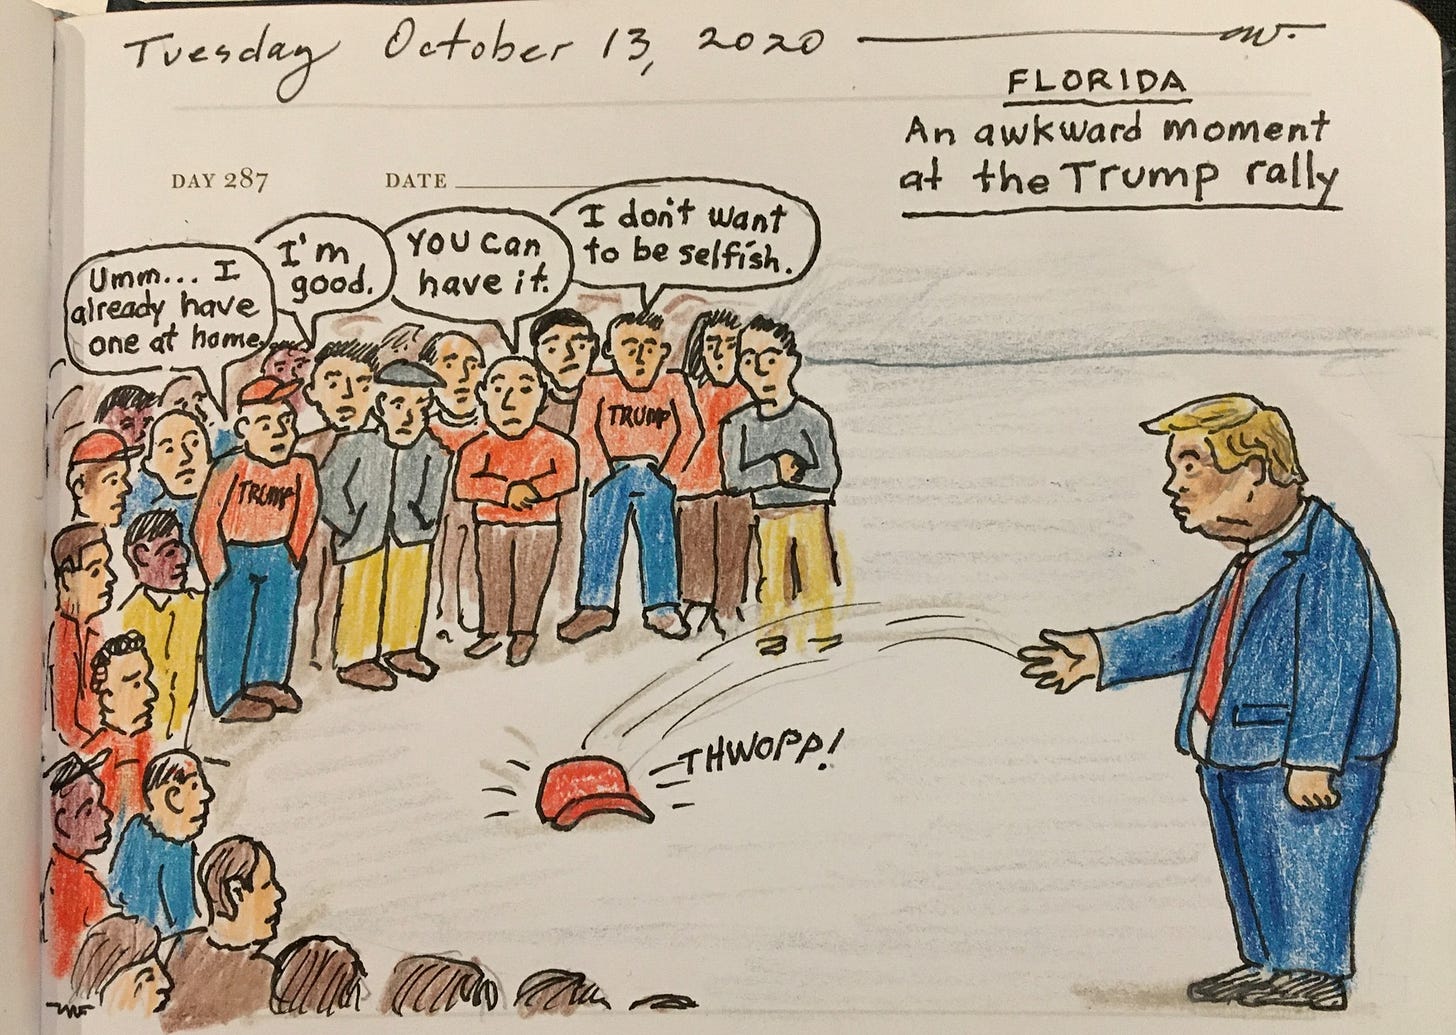 Tuesday October 13, 2020
FLORIDA
An awkward moment
at the Trump rally
DAY 287
DATE
Umm... I
already have
one at home.
I'm
good.
YOU can
have it.
I don't want
to be selfish.
TRUMP
TRUMP
THWOPP!